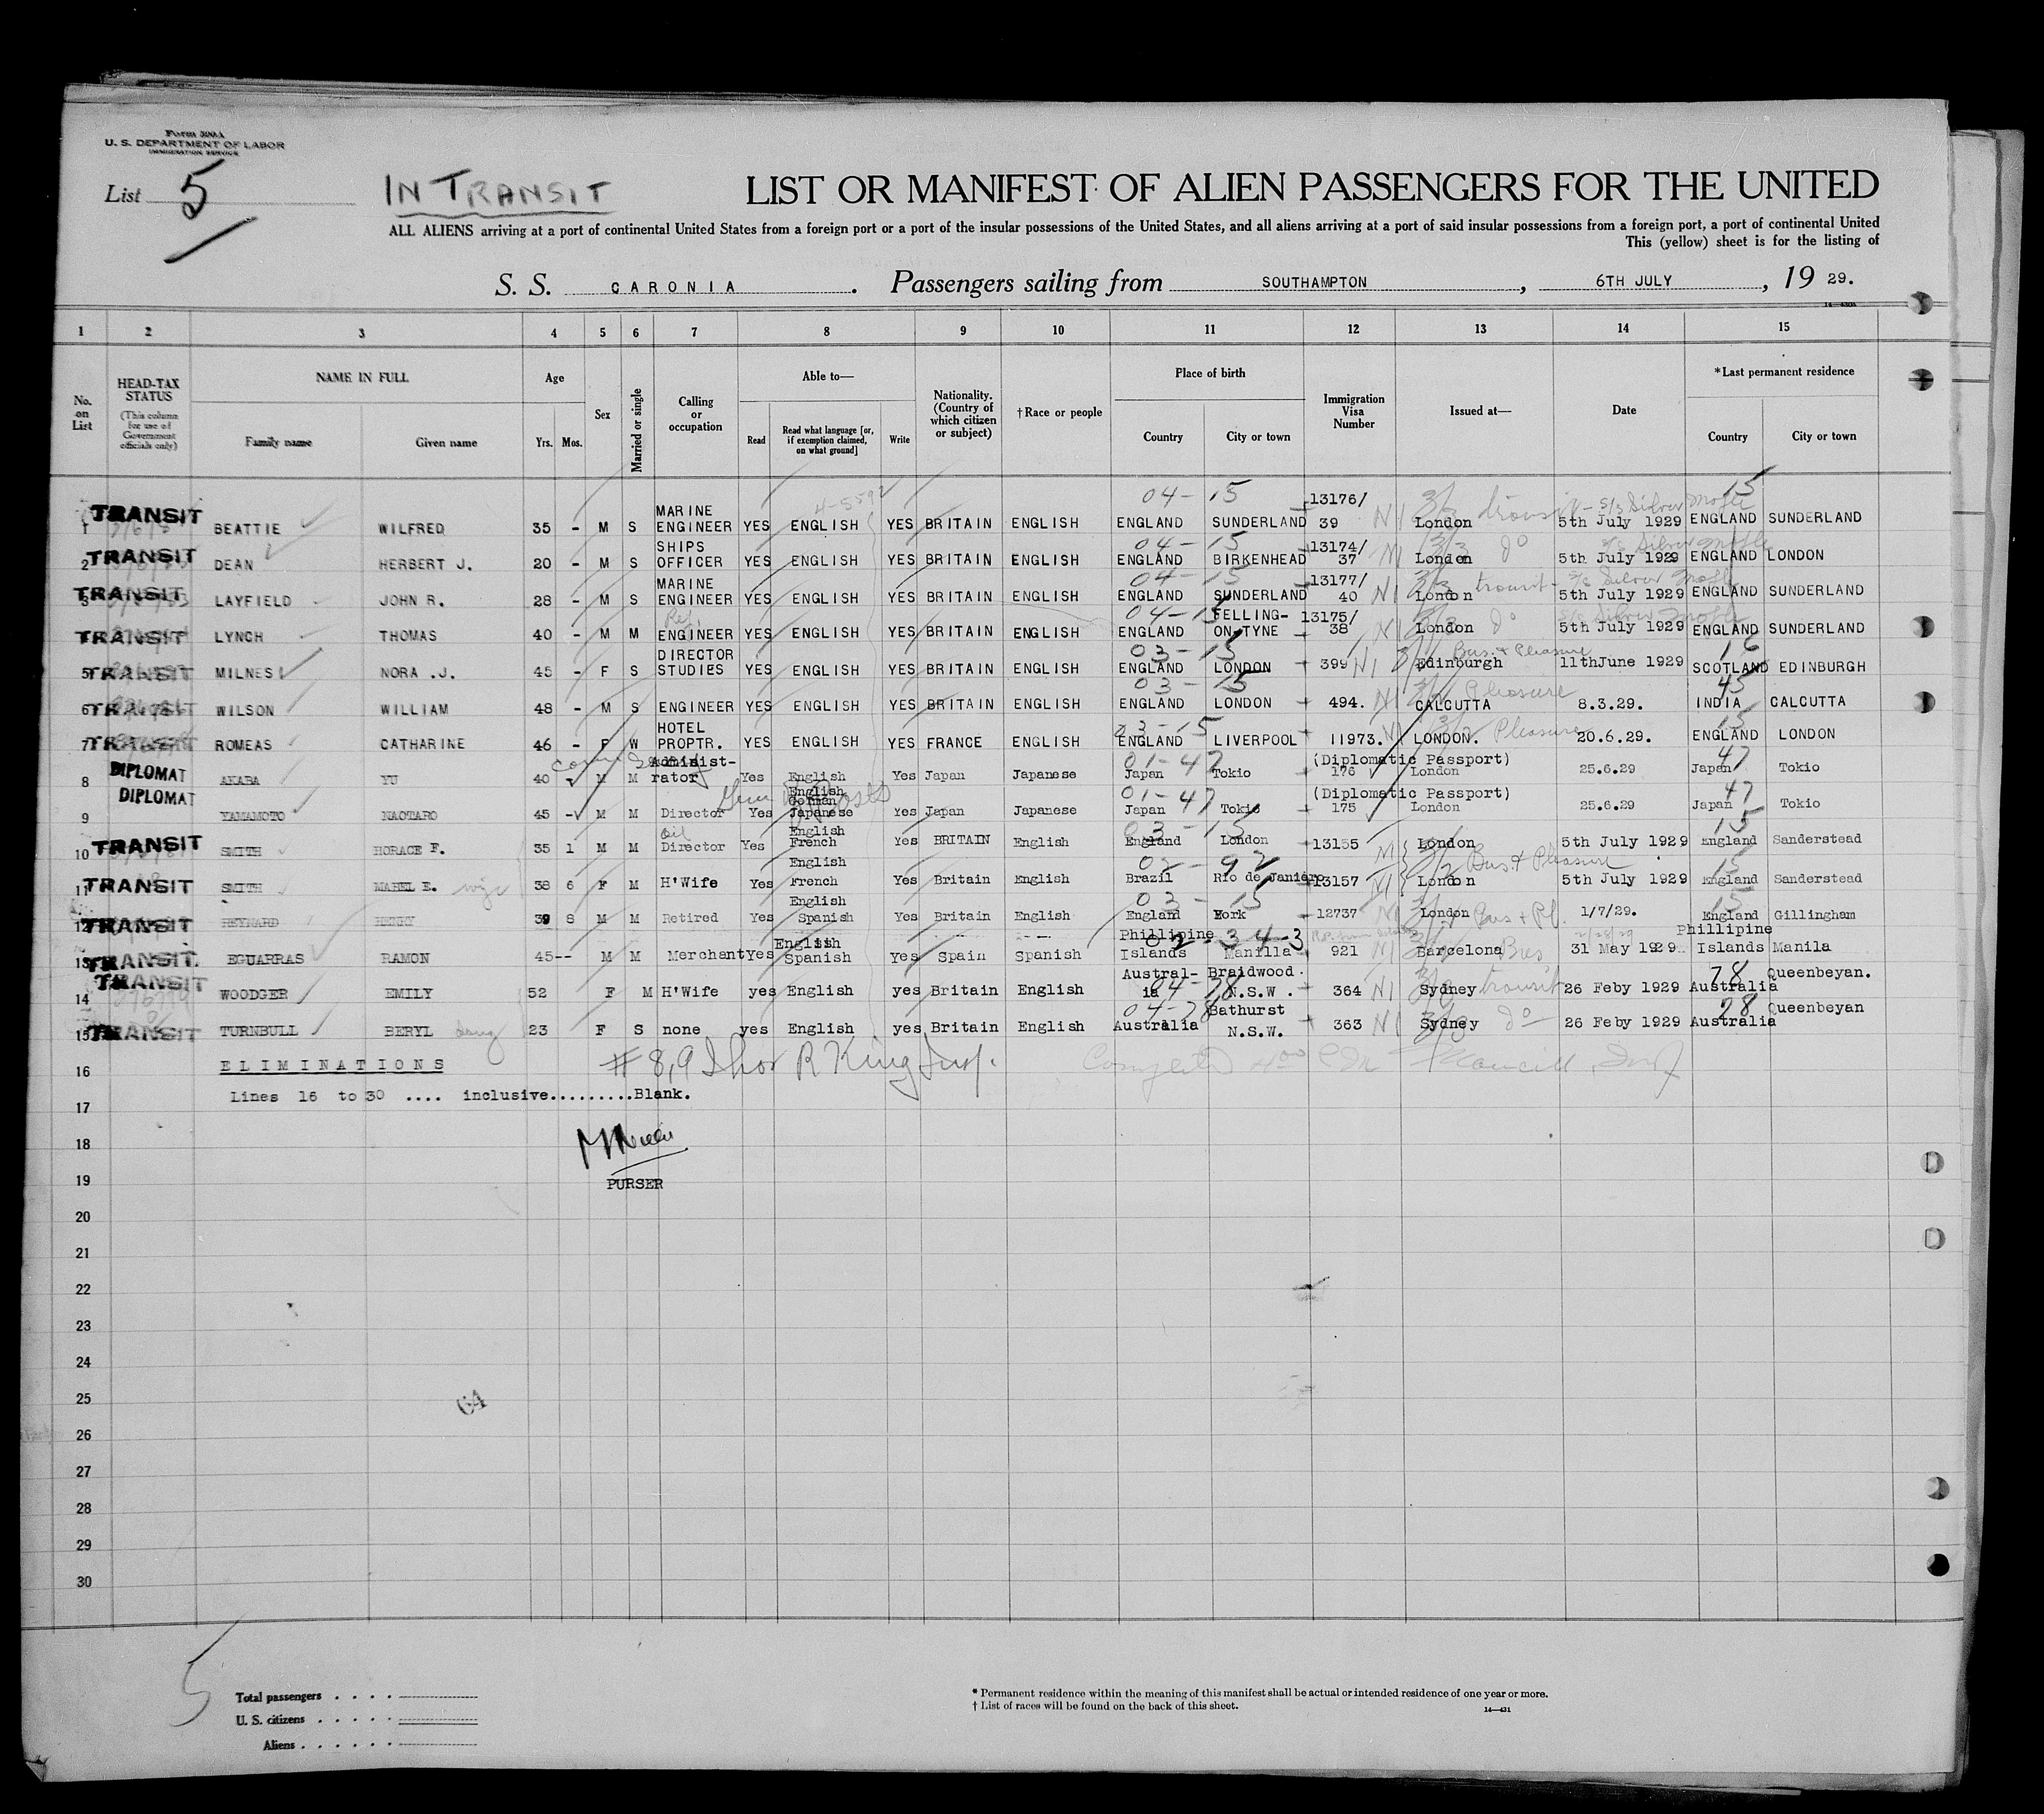 Form 500A
U. S. DEPARTMENT OF LABOR
IMMIGRATION SERVICE
List 5
IN TRANSIT
LIST OR MANIFEST OF ALIEN PASSENGERS FOR THE UNITED
ALL ALIENS arriving at a port of continental United States from a foreign port or a port of the insular possessions of the United States, and all aliens arriving at a port of said insular possessions from a foreign port, a port of continental United
This (yellow) sheet is for the listing of
S. S. CARONIA . Passengers sailing from SOUTHAMPTON , 6TH JULY , 19 29.
1 2 3 4 5 6 7 8 9 10 11 12 13 14 15
No. on List
HEAD-TAX STATUS (This column for use of Government officials only)
NAME IN FULL
Family name Given name
Age
Yrs. Mos.
Sex
Married or single
Calling or occupation
Able to—
Read
Read what language [or, if exemption claimed, on what ground]
Write
Nationality. (Country of which citizen or subject)
† Race or people
Place of birth
Country City or town
Immigration Visa Number
Issued at—
Date
* Last permanent residence
Country City or town
1 TRANSIT BEATTIE WILFRED 35 - M S MARINE ENGINEER YES ENGLISH YES BRITAIN ENGLISH ENGLAND SUNDERLAND 13176/39 London 5th July 1929 ENGLAND SUNDERLAND
2 TRANSIT DEAN HERBERT J. 20 - M S SHIPS OFFICER YES ENGLISH YES BRITAIN ENGLISH ENGLAND BIRKENHEAD 13174/37 London 5th July 1929 ENGLAND LONDON
3 TRANSIT LAYFIELD JOHN R. 28 - M S MARINE ENGINEER YES ENGLISH YES BRITAIN ENGLISH ENGLAND SUNDERLAND 13177/40 London 5th July 1929 ENGLAND SUNDERLAND
4 TRANSIT LYNCH THOMAS 40 - M M ENGINEER YES ENGLISH YES BRITAIN ENGLISH ENGLAND FELLING-ON-TYNE 13175/38 London 5th July 1929 ENGLAND SUNDERLAND
5 TRANSIT MILNES NORA .J. 45 - F S DIRECTOR STUDIES YES ENGLISH YES BRITAIN ENGLISH ENGLAND LONDON 399 Edinburgh 11thJune 1929 SCOTLAND EDINBURGH
6 TRANSIT WILSON WILLIAM 48 - M S ENGINEER YES ENGLISH YES BRITAIN ENGLISH ENGLAND LONDON 494. CALCUTTA 8.3.29. INDIA CALCUTTA
7 TRANSIT ROMEAS CATHARINE 46 - F W HOTEL PROPTR. YES ENGLISH YES FRANCE ENGLISH ENGLAND LIVERPOOL 11973. LONDON. Pleasure 20.6.29. ENGLAND LONDON
8 DIPLOMAT AKABA YU 40 M M Administrator Yes English Yes Japan Japanese Japan Tokio (Diplomatic Passport) 176 London 25.6.29 Japan Tokio
9 DIPLOMAT YAMAMOTO NAOTARO 45 - M M Director Yes English German Japanese Yes Japan Japanese Japan Tokio (Diplomatic Passport) 175 London 25.6.29 Japan Tokio
10 TRANSIT SMITH HORACE F. 35 1 M M Oil Director Yes English French Yes BRITAIN English England London 13155 London 5th July 1929 England Sanderstead
11 TRANSIT SMITH MABEL E. wife 38 6 F M H'Wife Yes English French Yes Britain English Brazil Rio de Janiero 13157 London 5th July 1929 England Sanderstead
12 TRANSIT REYNARD HENRY 39 8 M M Retired Yes English Spanish Yes Britain English England York 12737 London 1/7/29. England Gillingham
13 TRANSIT. EGUARRAS RAMON 45-- M M Merchant Yes English Spanish Yes Spain Spanish Phillipine Islands Manilla 921 Barcelona 31 May 1929. Phillipine Islands Manila
14 TRANSIT WOODGER EMILY 52 F M H'Wife yes English yes Britain English Australia Braidwood. N.S.W. 364 Sydney transit 26 Feby 1929 Australia Queenbeyan.
15 TRANSIT TURNBULL BERYL 23 F S none yes English yes Britain English Australia Bathurst N.S.W. 363 Sydney do 26 Feby 1929 Australia Queenbeyan
16 ELIMINATIONS # 8,9 R King Insp.
Lines 16 to 30 .... inclusive.........Blank.
17
18
PURSER
19
20
21
22
23
24
25
26
27
28
29
30
5
Total passengers
U. S. citizens
Aliens
* Permanent residence within the meaning of this manifest shall be actual or intended residence of one year or more.
† List of races will be found on the back of this sheet.
14—431